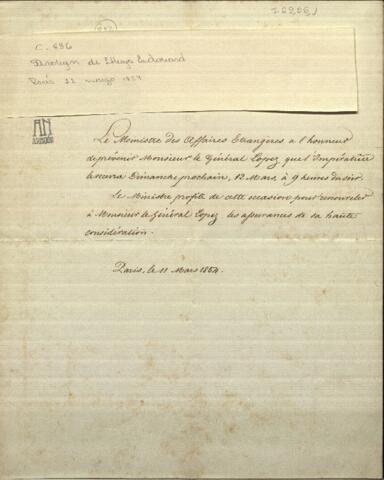 C. 836
Drouyn de Lhuys Edouard
París 11 março 1854
AN
Le Ministre des Affaires Etrangères a l'honneur
de prévenir Monsieur le Général Lopez que l'Impératrice
le recevra Dimanche prochain, 12 Mars, à 9 heures du soir.
Le Ministre profite de cette occasion pour renouveler
à Monsieur le Général Lopez les assurances de sa haute
considération.
Paris, le 11 Mars 1854.